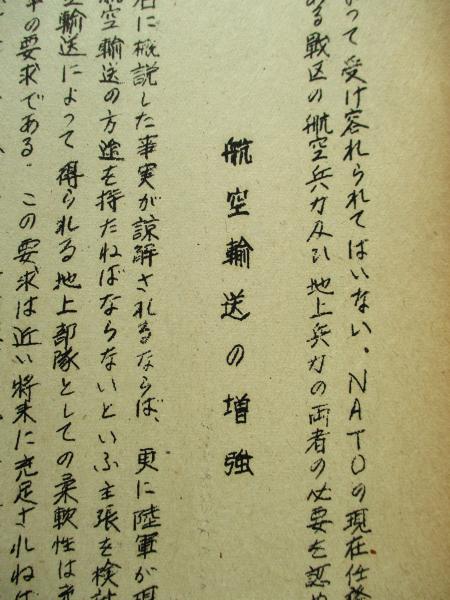 って受け容れられてはいない。NATOの現在任務
る戦区の航空兵力及び地上兵力の両者の必要を認め
航空輸送の増強
右に概説した事実が諒解されるならば、更に陸軍が現
空輸送の方途を持たねばならないといふ主張を検討
輸送によって得られる地上部隊としての柔軟性は
の要求である。この要求は近い将来に充足されねば